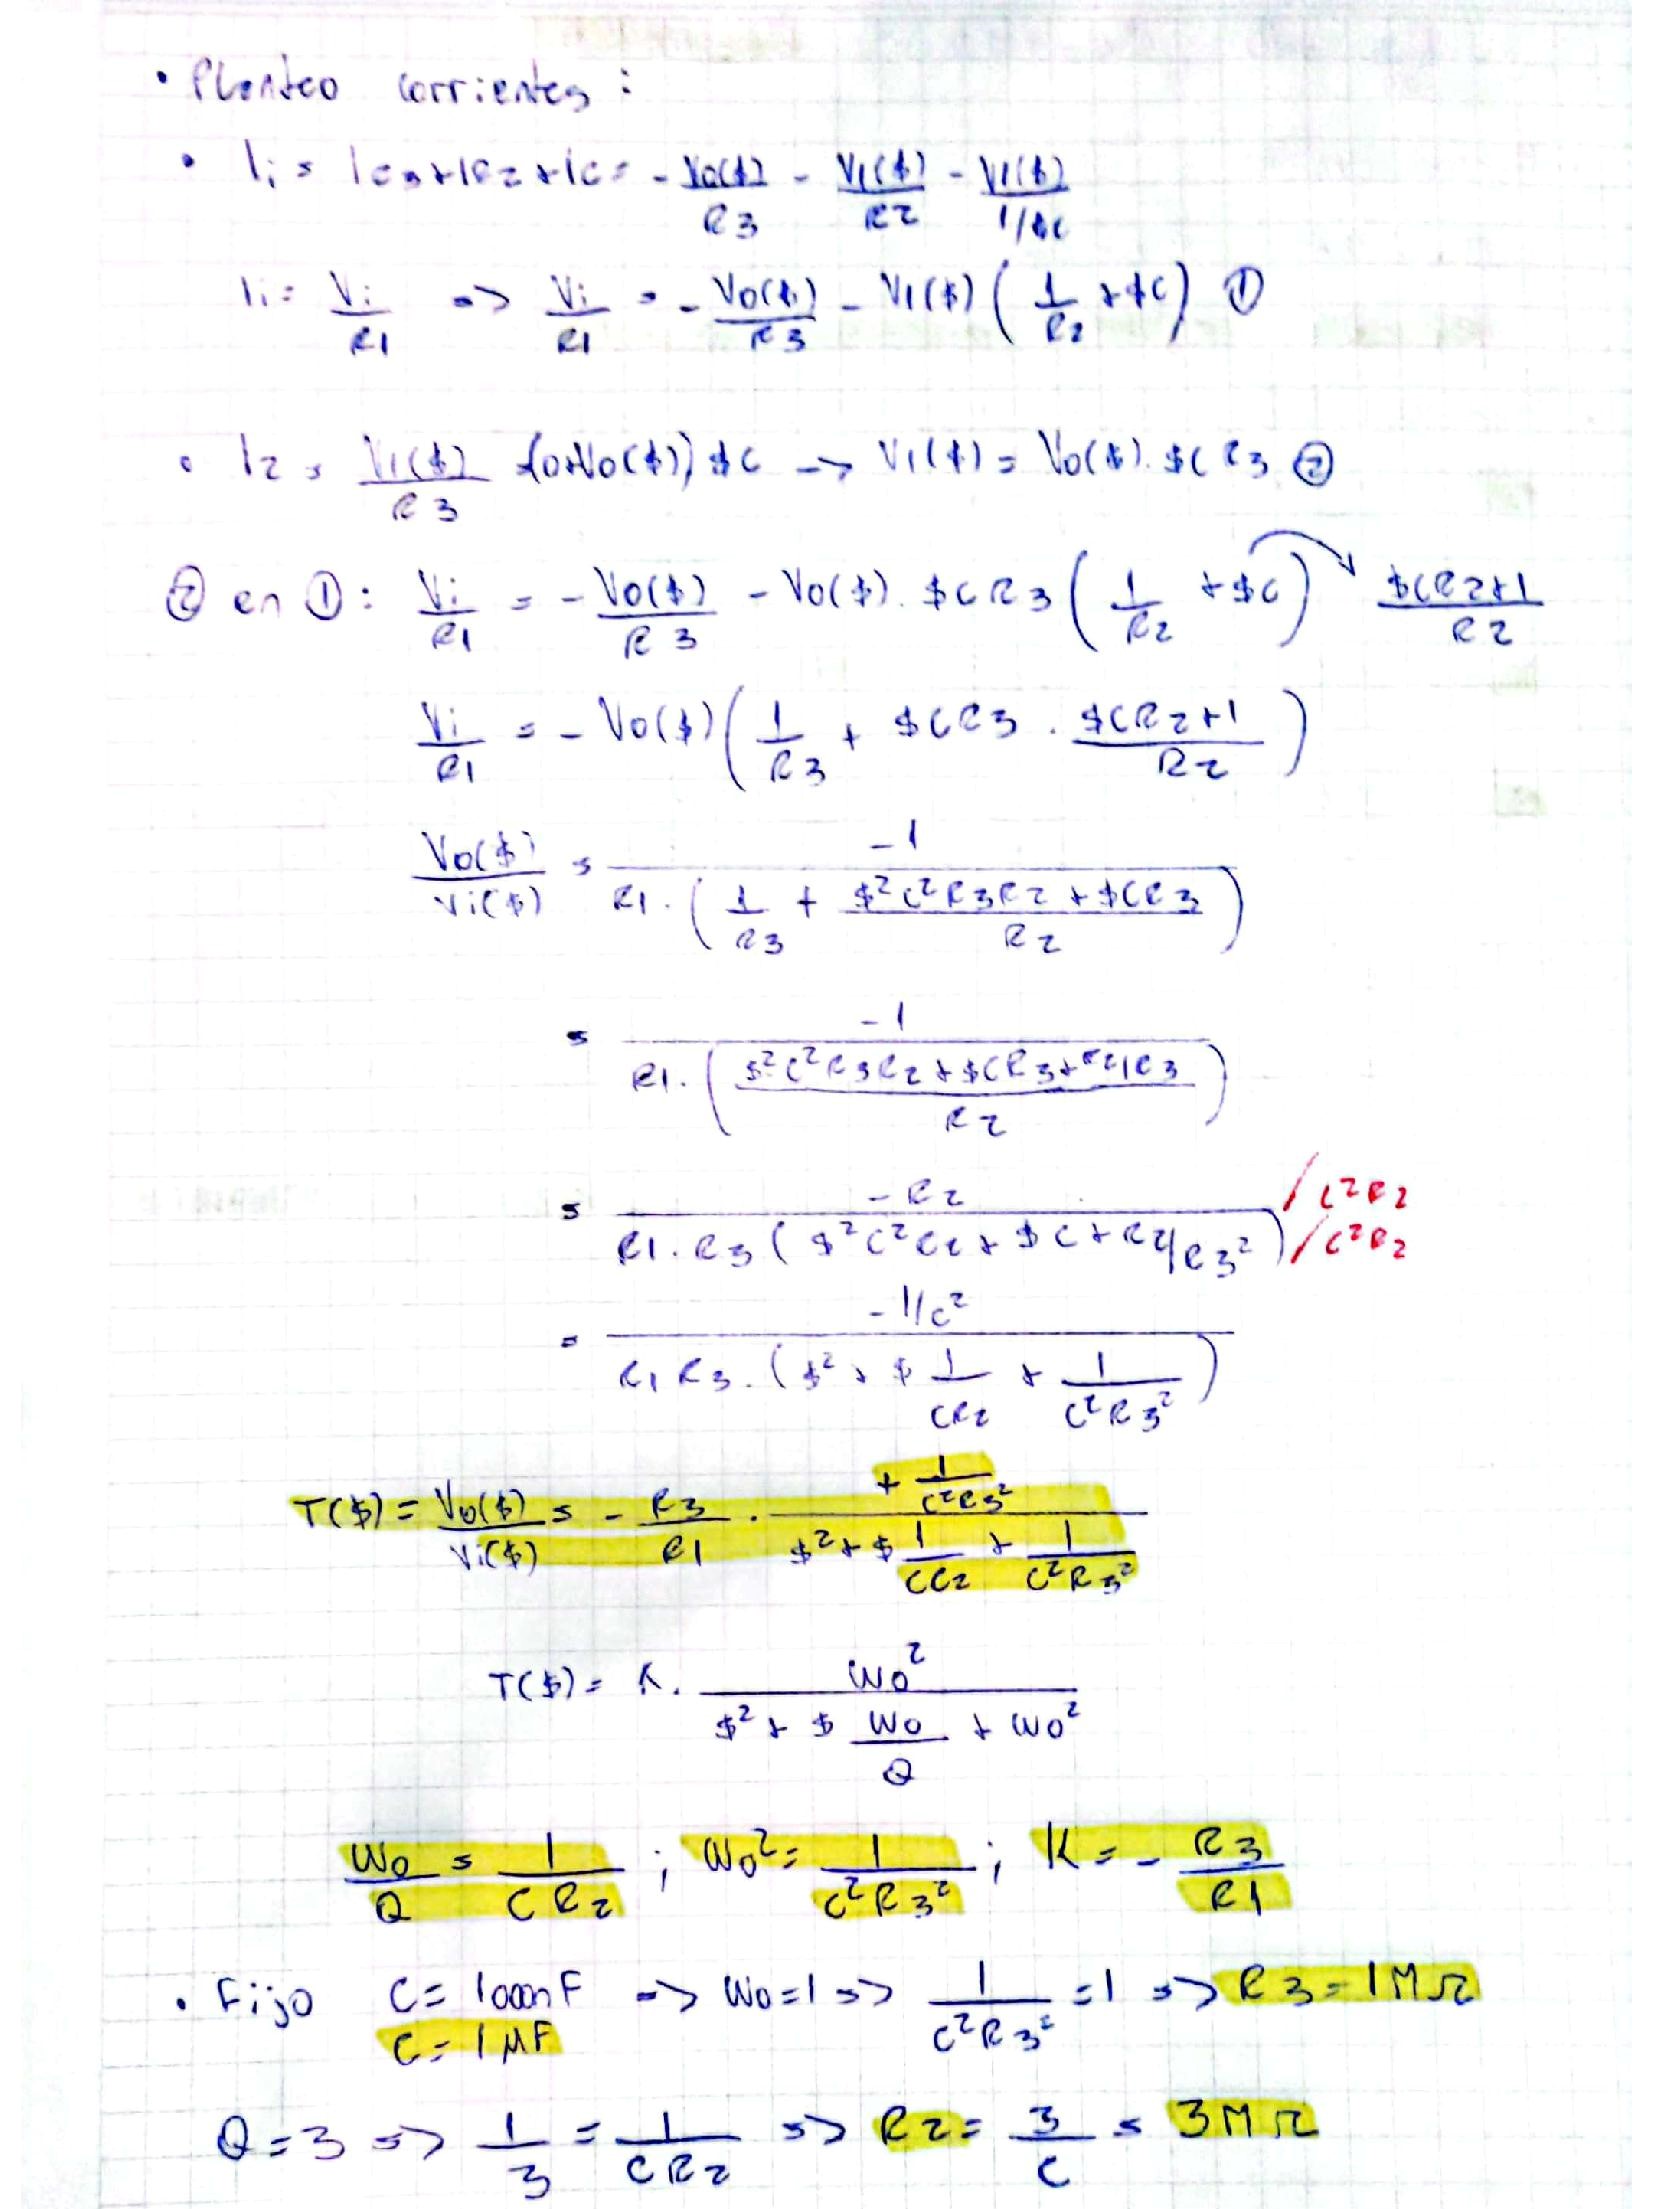 • Planteo corrientes :
• Ii = IR3+IR2+IC = - Vo($)/R3 - V1($)/R2 - V1($)/(1/$C)
Ii = Vi/R1 => Vi/R1 = - Vo($)/R3 - V1($) ( 1/R2 + $C ) ①
• I2 = V1($)/R3 (0+Vo($)) $C -> V1($) = Vo($). $C R3 ②
② en ① : Vi/R1 = - Vo($)/R3 - Vo($). $C R3 ( 1/R2 + $C ) ($CR2+1)/R2
Vi/R1 = - Vo($) ( 1/R3 + $CR3 . ($CR2+1)/R2 )
Vo($)/Vi($) = -1 / ( R1. ( 1/R3 + ($²C²R3R2 + $CR3)/R2 ) )
= -1 / ( R1. ( ($²C²R3R2 + $CR3 + R2/R3)/R2 ) )
= -R2 / ( R1.R3 ( $²C²R2 + $C + R2/R3² ) ) /C²R2 /C²R2
= -1/C² / ( R1 R3. ( $² + $ 1/CR2 + 1/C²R3² ) )
T($) = Vo($)/Vi($) = - R3/R1 . ( + 1/C²R3² ) / ( $² + $ 1/CR2 + 1/C²R3² )
T($) = K. Wo² / ( $² + $ Wo/Q + Wo² )
Wo/Q = 1/CR2 ; Wo² = 1/C²R3² ; K = - R3/R1
• Fijo C = 1000nF => Wo = 1 => 1/C²R3² = 1 => R3 = 1MΩ
C = 1μF
Q = 3 => 1/3 = 1/CR2 => R2 = 3/C = 3MΩ